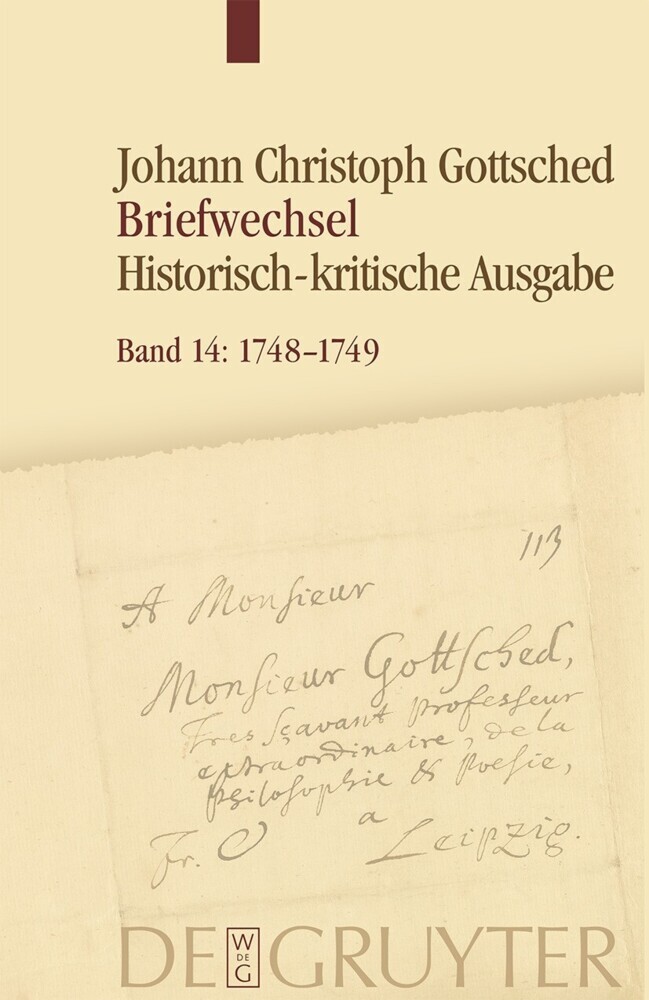 Johann Christoph Gottsched
Briefwechsel
Historisch-kritische Ausgabe
Band 14: 1748–1749
113
A Monsieur
Monsieur Gottsched,
Tres sçavant professeur
extraordinaire, de la
philosophie & Poesie,
a
Fr. Leipzig.
DE GRUYTER
W
DE
G